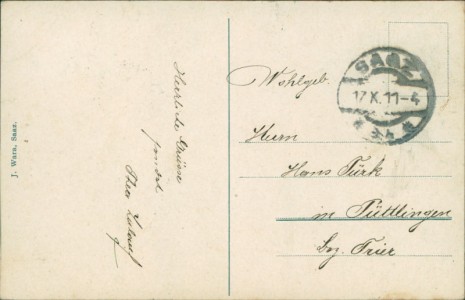 J. Wara, Saaz.
Herzliche Grüsse
sendet
Wohlgeb.
SAAZ
17.X.11-4
Herrn
Hans Türk
in Püttlingen
Bz. Trier